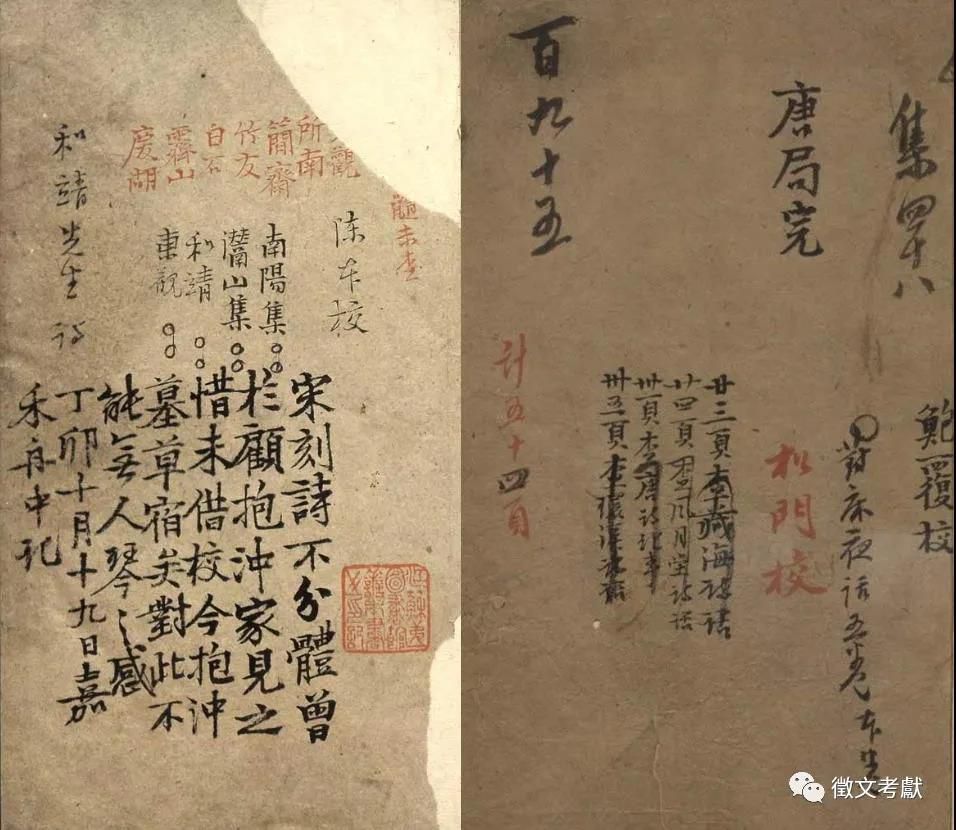 髓未查
陈本校
觀
所南
簡齋
竹友
白石
霽山
慶湖
南陽集
灊山集
和靖
東觀
和靖先生詩
宋刻詩不分體曾
於顧抱沖家見之
惜未借校今抱沖
墓草宿矣對此不
能無人琴〻感
丁卯十月十九日嘉
禾舟中記
集四十八
鮑覆校
對床夜話五卷
唐局完
松門校
廿三頁李藏海詩話
廿四頁 風月堂詩話
卅一頁 唐詩紀事
卅五頁
計五十四頁
百九十五
徵文考獻